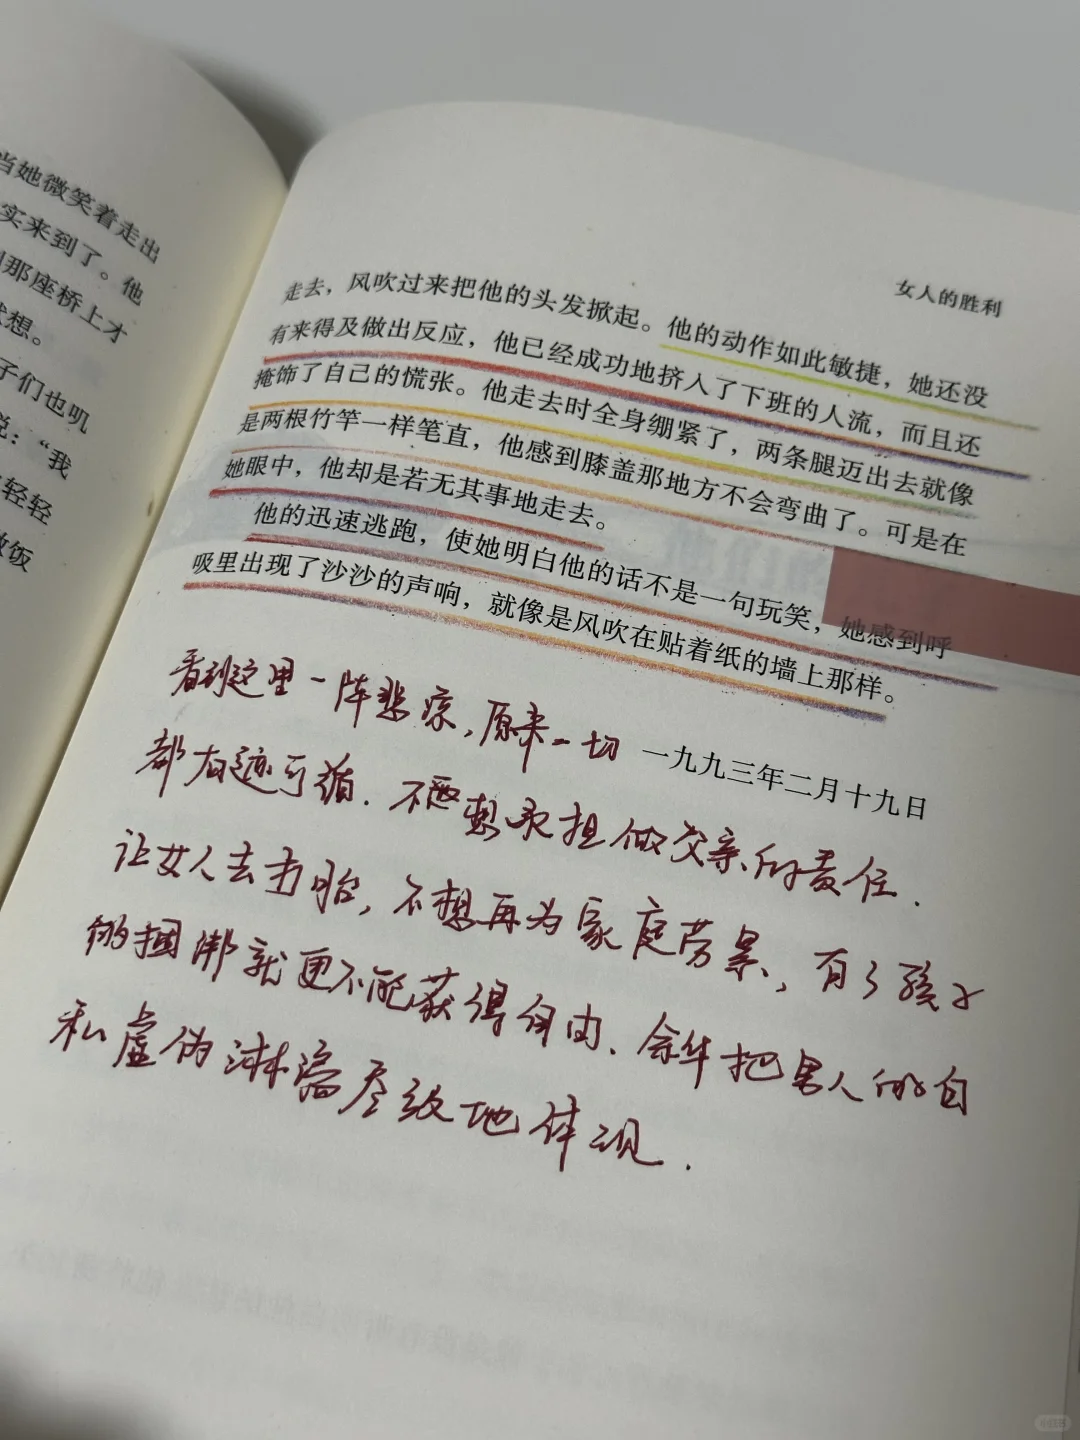 当她微笑着走出
实来到了。他
那座桥上才
想。
子们也叽
说：“我
轻轻
饭
女人的胜利
走去，风吹过来把他的头发掀起。他的动作如此敏捷，她还没
有来得及做出反应，他已经成功地挤入了下班的人流，而且还
掩饰了自己的慌张。他走去时全身绷紧了，两条腿迈出去就像
是两根竹竿一样笔直，他感到膝盖那地方不会弯曲了。可是在
她眼中，他却是若无其事地走去。
他的迅速逃跑，使她明白他的话不是一句玩笑，她感到呼
吸里出现了沙沙的声响，就像是风吹在贴着纸的墙上那样。
一九九三年二月十九日
看到这里一阵悲凉，原来一切
都有迹可循．不想承担做父亲的责任．
让女人去打胎，不想再为家庭劳累、有了孩子
的捆绑就更不能获得自由、余华把男人的自
私虚伪淋漓尽致地体现．